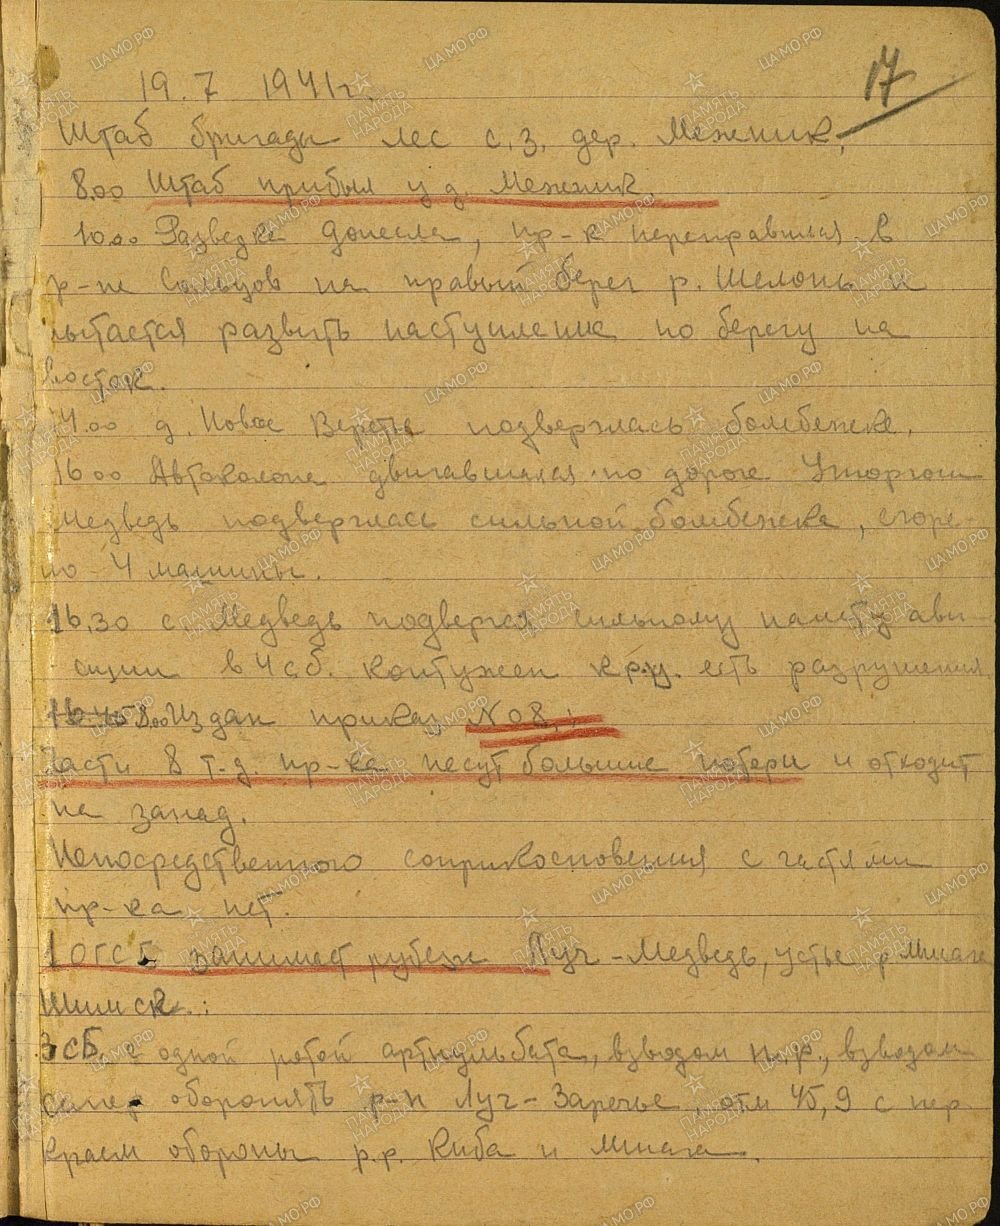 17
19.7 1941г.
Штаб бригады лес с.з. дер. Межник.
8.00 Штаб прибыл у д. Межник.
10.00 Разведка донесла, пр-к переправился в
р-не Сольцов на правый берег р. Шелонь и
пытается развить наступление по берегу на
восток.
14.00 д. Новое Веретье подверглась бомбежке.
16.00 Автоколона двигавшаяся по дороге Уторгош
Медведь подверглась сильной бомбежке, сгоре-
ло 4 машины.
16.30 с. Медведь подвергся сильному налету ави-
ации в 4 сб. контужен кр.у. есть разрушения
8.00 Издан приказ №08.:
Части 8 т.д. пр-ка несут большие потери и отходит
на запад.
Непосредственного соприкосновения с частями
пр-ка нет.
1 ОГСБ занимает рубеж Луч - Медведь, устье р Мшага
Шимск.:
3 сБ. с одной ротой артпульбата, взводом п.р., взводом
сапер оборонять р-н Луч - Заречье, отм 45,9 с пер
краем обороны р.р. Киба и Мшага.
ПАМЯТЬ НАРОДА
ЦАМО.РФ